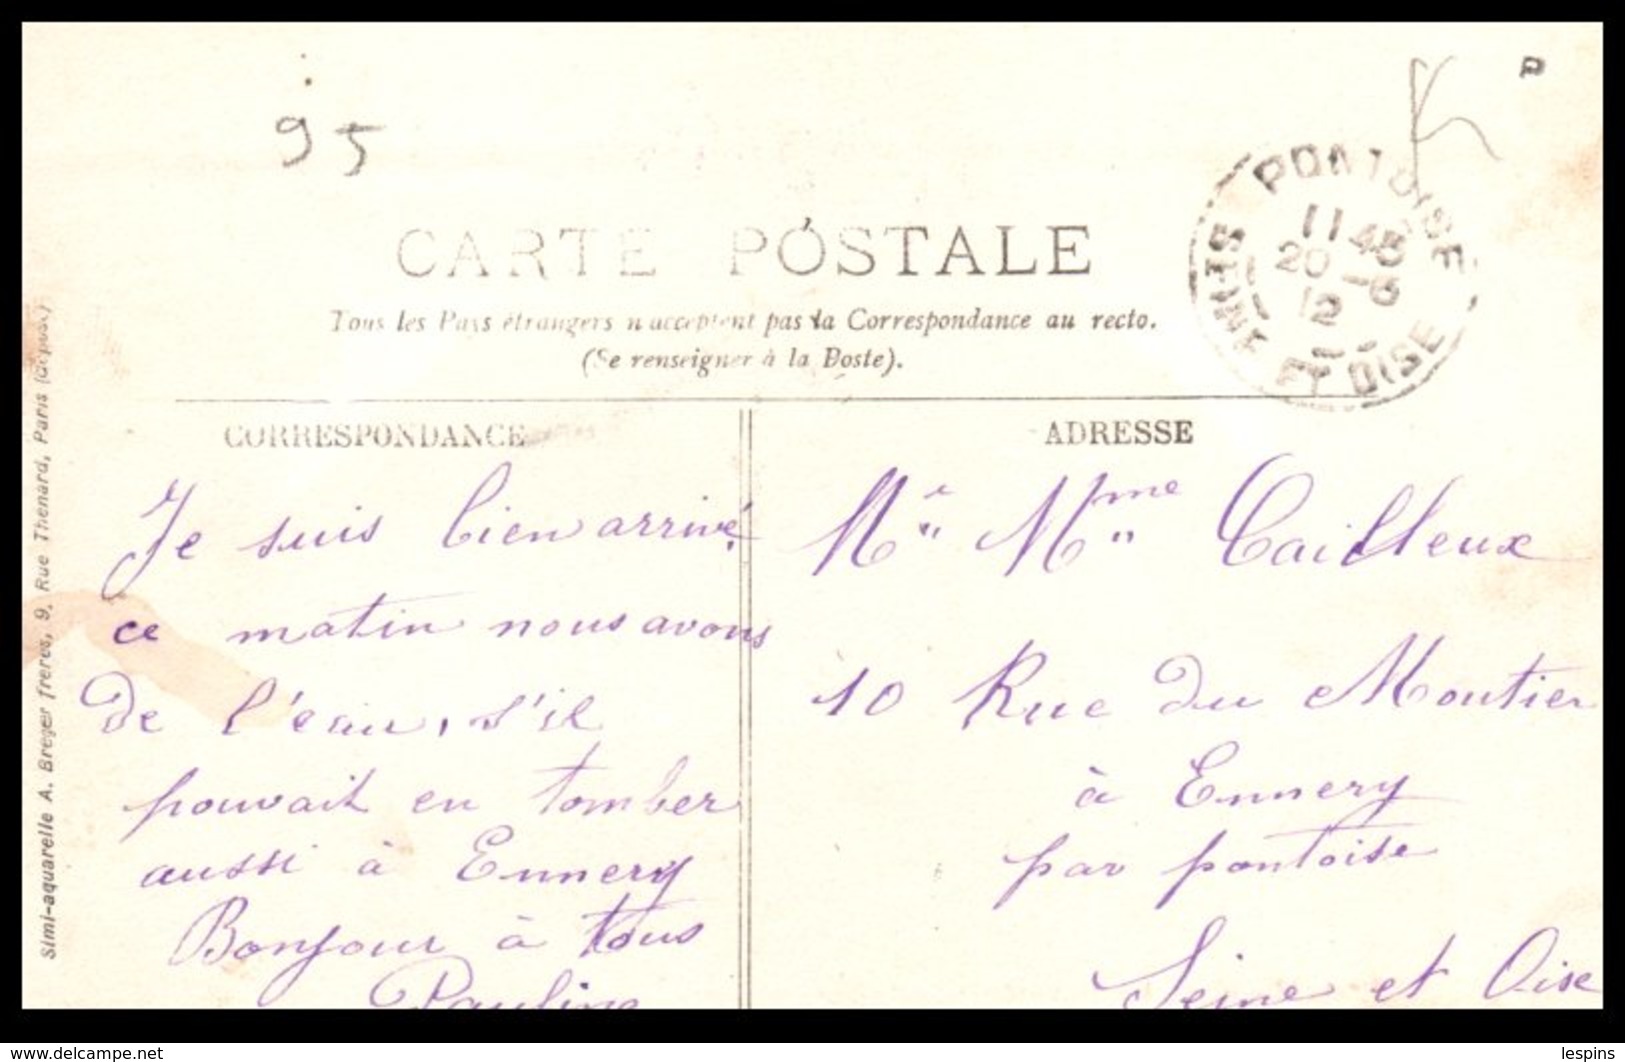 95
K
P
PONTOISE
11 45
20 -6
12
SEINE ET OISE
CARTE POSTALE
Tous les Pays étrangers n'acceptent pas la Correspondance au recto.
(Se renseigner à la Poste).
CORRESPONDANCE
Je suis bien arrivé
ce matin nous avons
de l'eau, s'il
pouvait en tomber
aussi à Ennery
Bonjour à tous
Pauline
ADRESSE
Mr Mme Cailleux
10 Rue du Moutier
à Ennery
par pontoise
Seine et Oise
Simi-aquarelle A. Breger frères, 9, Rue Thenard, Paris (déposé)
www.delcampe.net
lespins